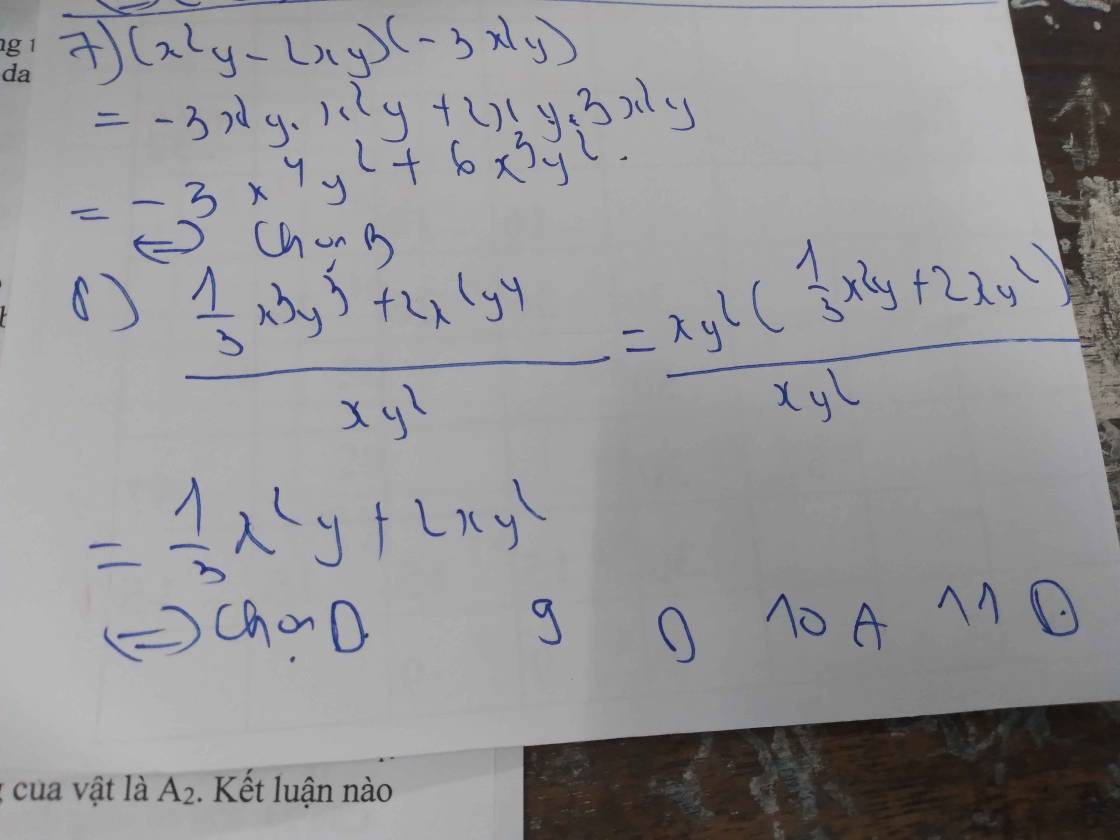 7) (x²y - 2xy)(-3x²y)
= -3x²y . x²y + 2xy . 3x²y
= -3x⁴y² + 6x³y².
⇔ Chọn B
8) (1/3 x³y³ + 2x²y⁴)/(xy²) = xy²(1/3 x²y + 2xy²)/(xy²)
= 1/3 x²y + 2xy²
⇔ Chọn D 9 D 10 A 11 D
da
cua vật là A₂. Kết luận nào